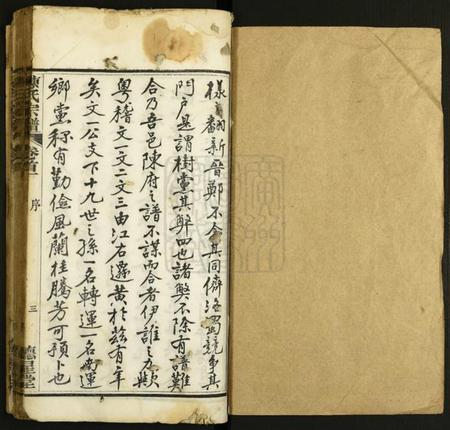 樣翻新晉鄭不合其同儕洛蜀競爭其
門戶是謂樹黨其弊四也諸弊不除有譜難
合乃吾邑陳府之譜不謀而合者伊誰之力歟
粵稽文一文二文三由江右遷黃於茲有年
矣文一公支下十九世之孫一名轉運一名 運
鄉黨稱有勤儉風蘭桂騰芳可預卜也
陳氏宗譜
卷首
序
三
德星堂